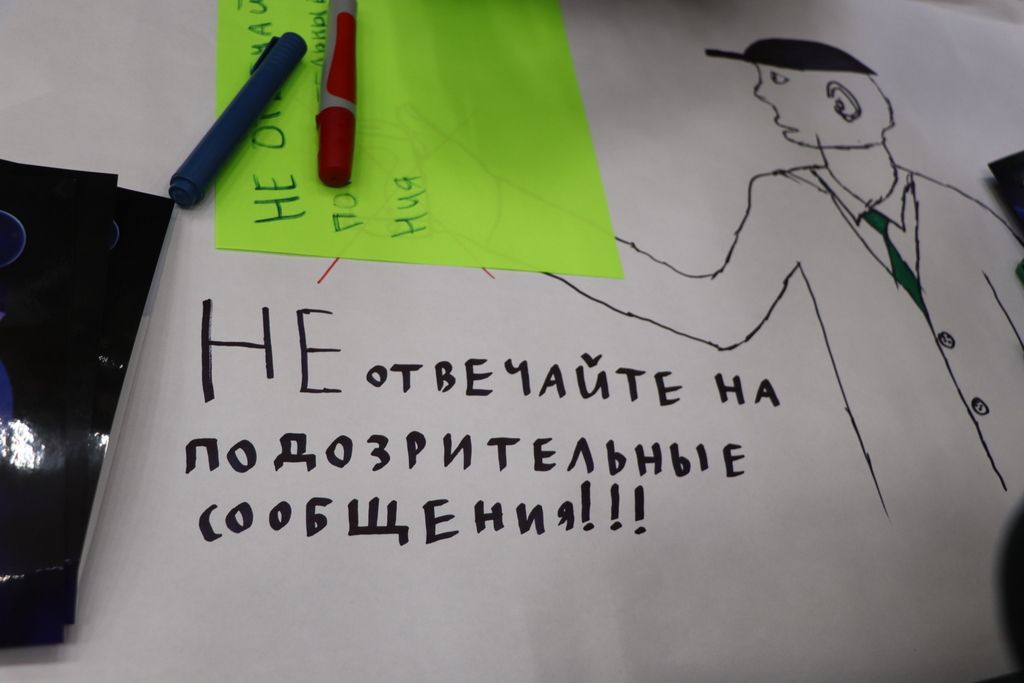 НЕ
ПО
НИЯ
НЕ ОТВЕЧАЙТЕ НА
ПОДОЗРИТЕЛЬНЫЕ
СООБЩЕНИЯ!!!